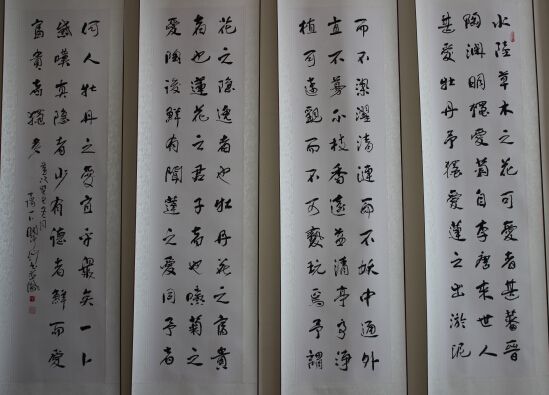 水陸草木之花可愛者甚蕃晉
陶淵明獨愛菊自李唐来世人
甚愛牡丹予獨愛蓮之出淤泥
而不染濯清漣而不妖中通外
直不蔓不枝香遠益清亭亭淨
植可遠觀而不可褻玩焉予謂
花之隐逸者也牡丹花之富貴
者也蓮花之君子者也噫菊之
愛陶後鮮有聞蓮之愛同予者
何人牡丹之愛宜乎眾矣一卜
感嘆真隐者少有德者鮮而愛
富貴者獨多